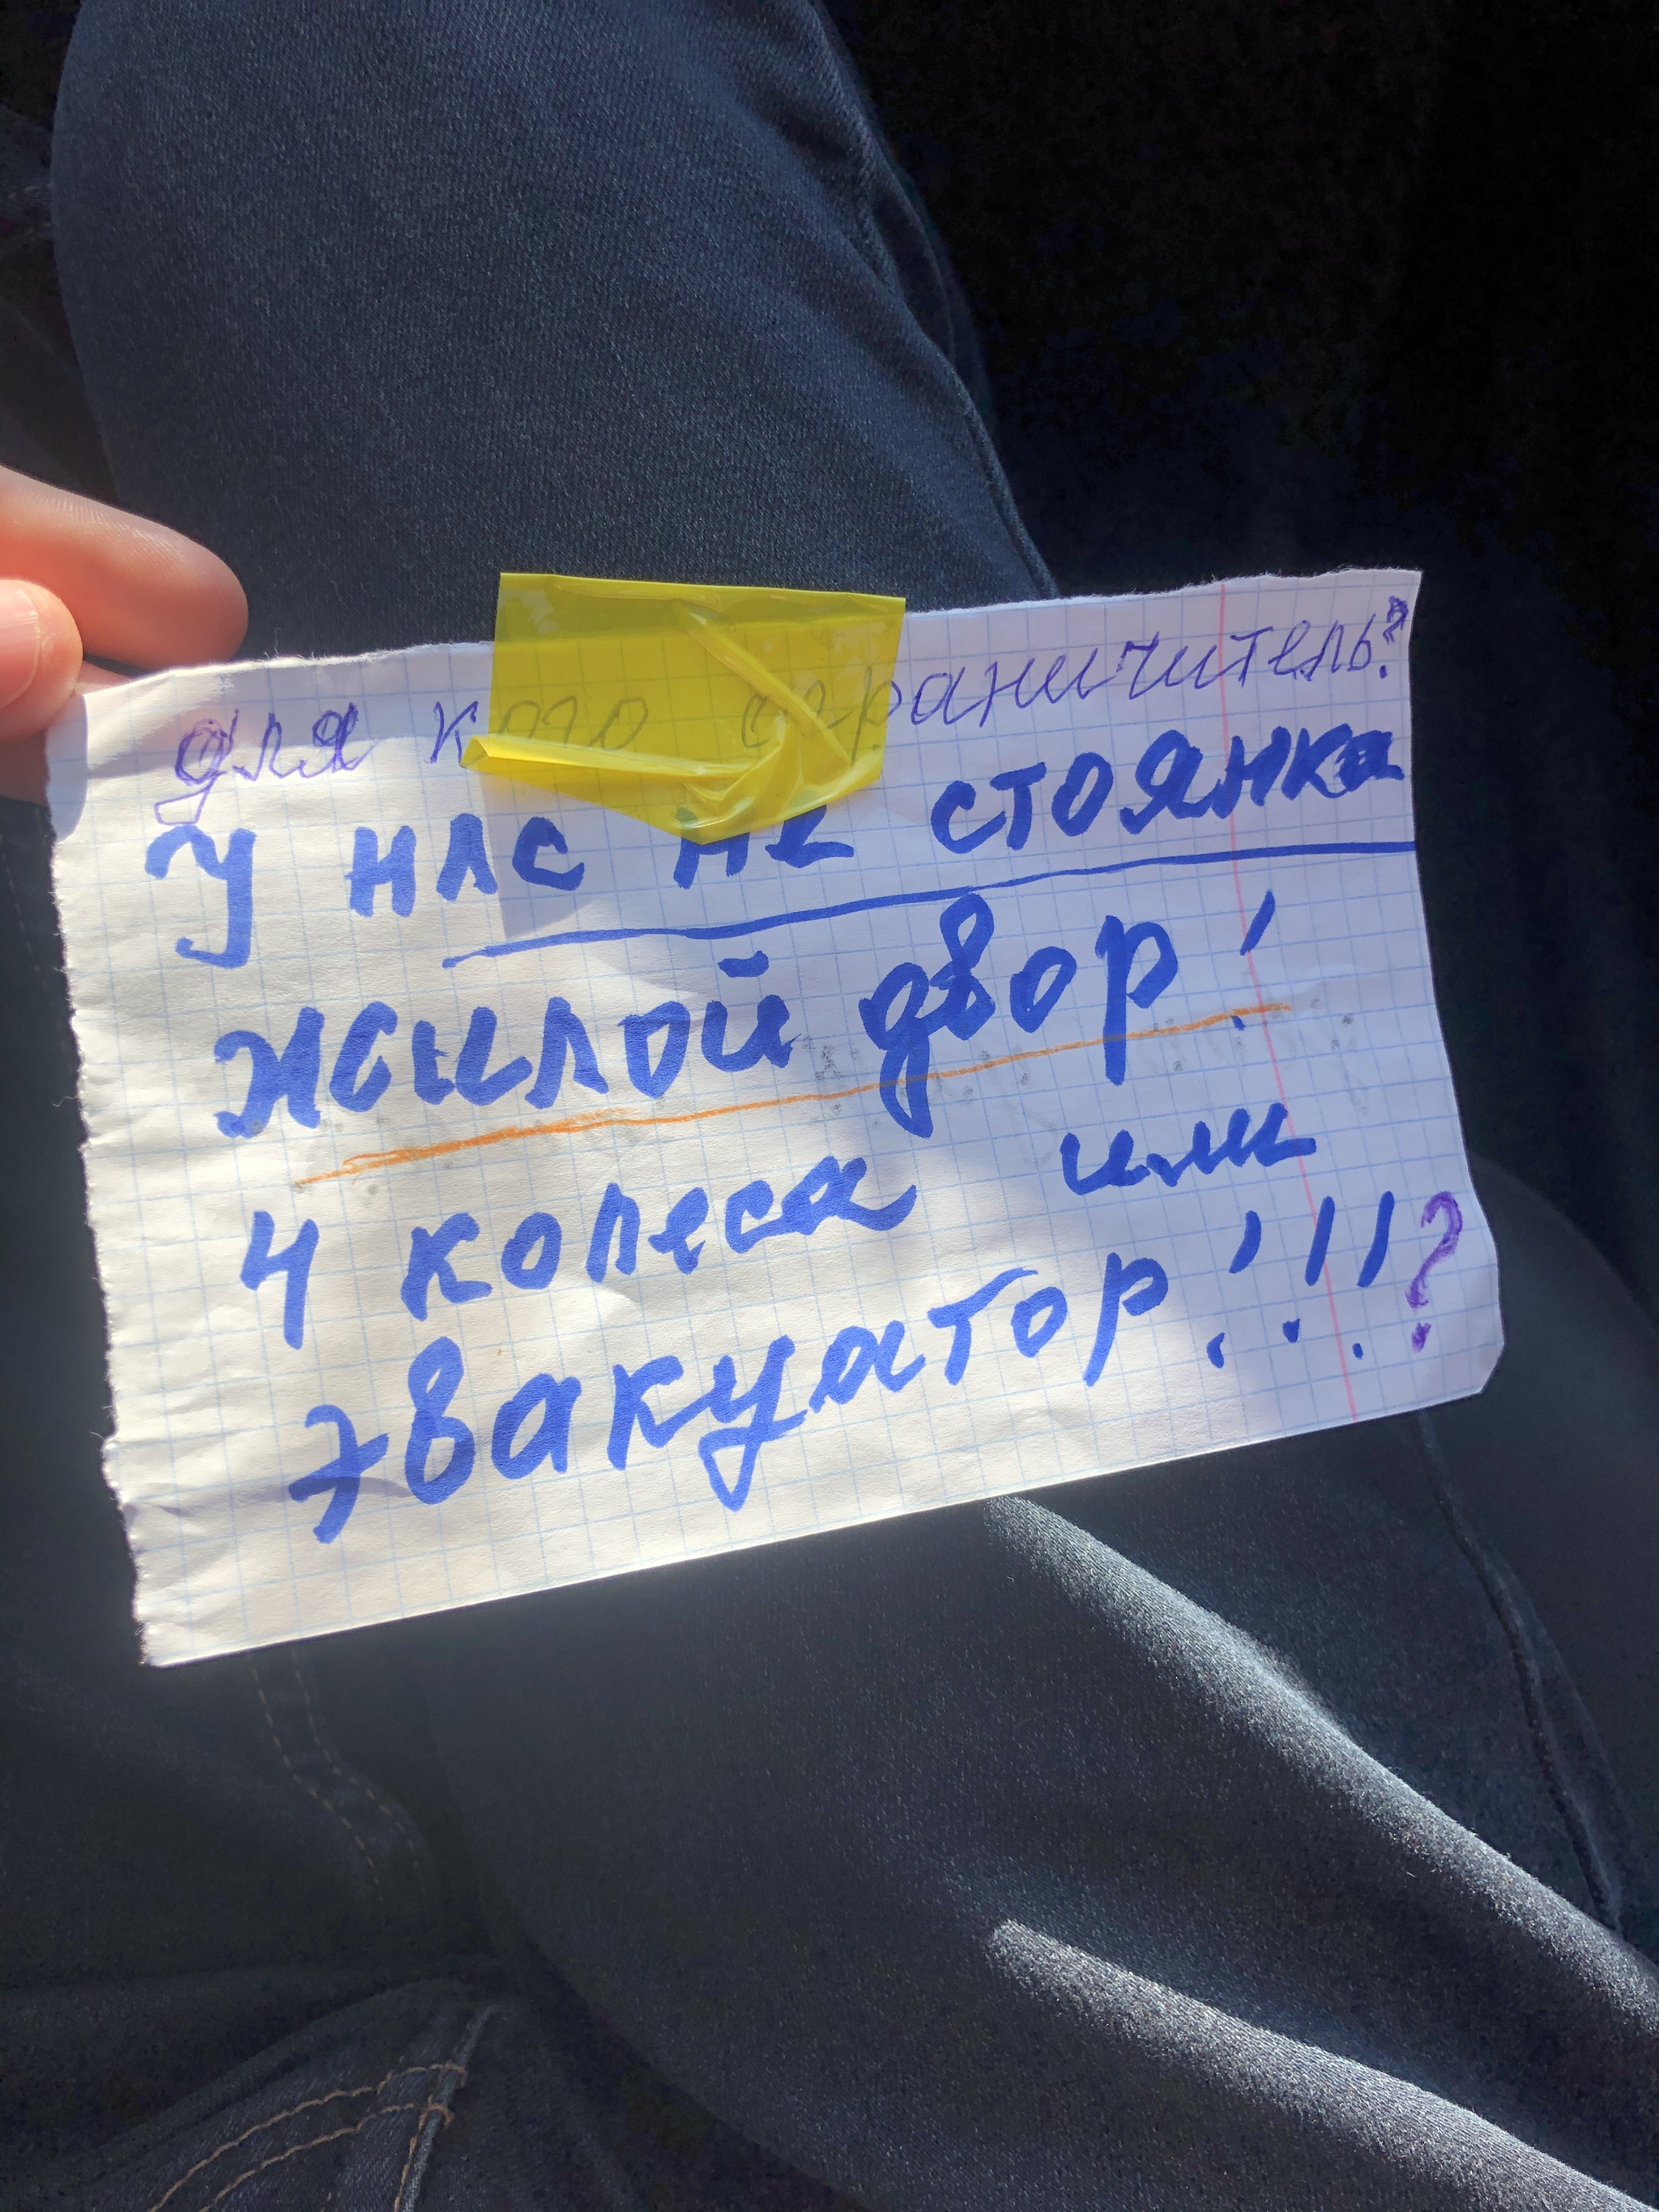 для кого ограничитель?
У нас не стоянка
жилой двор!
4 колеса или
эвакуатор!!!?